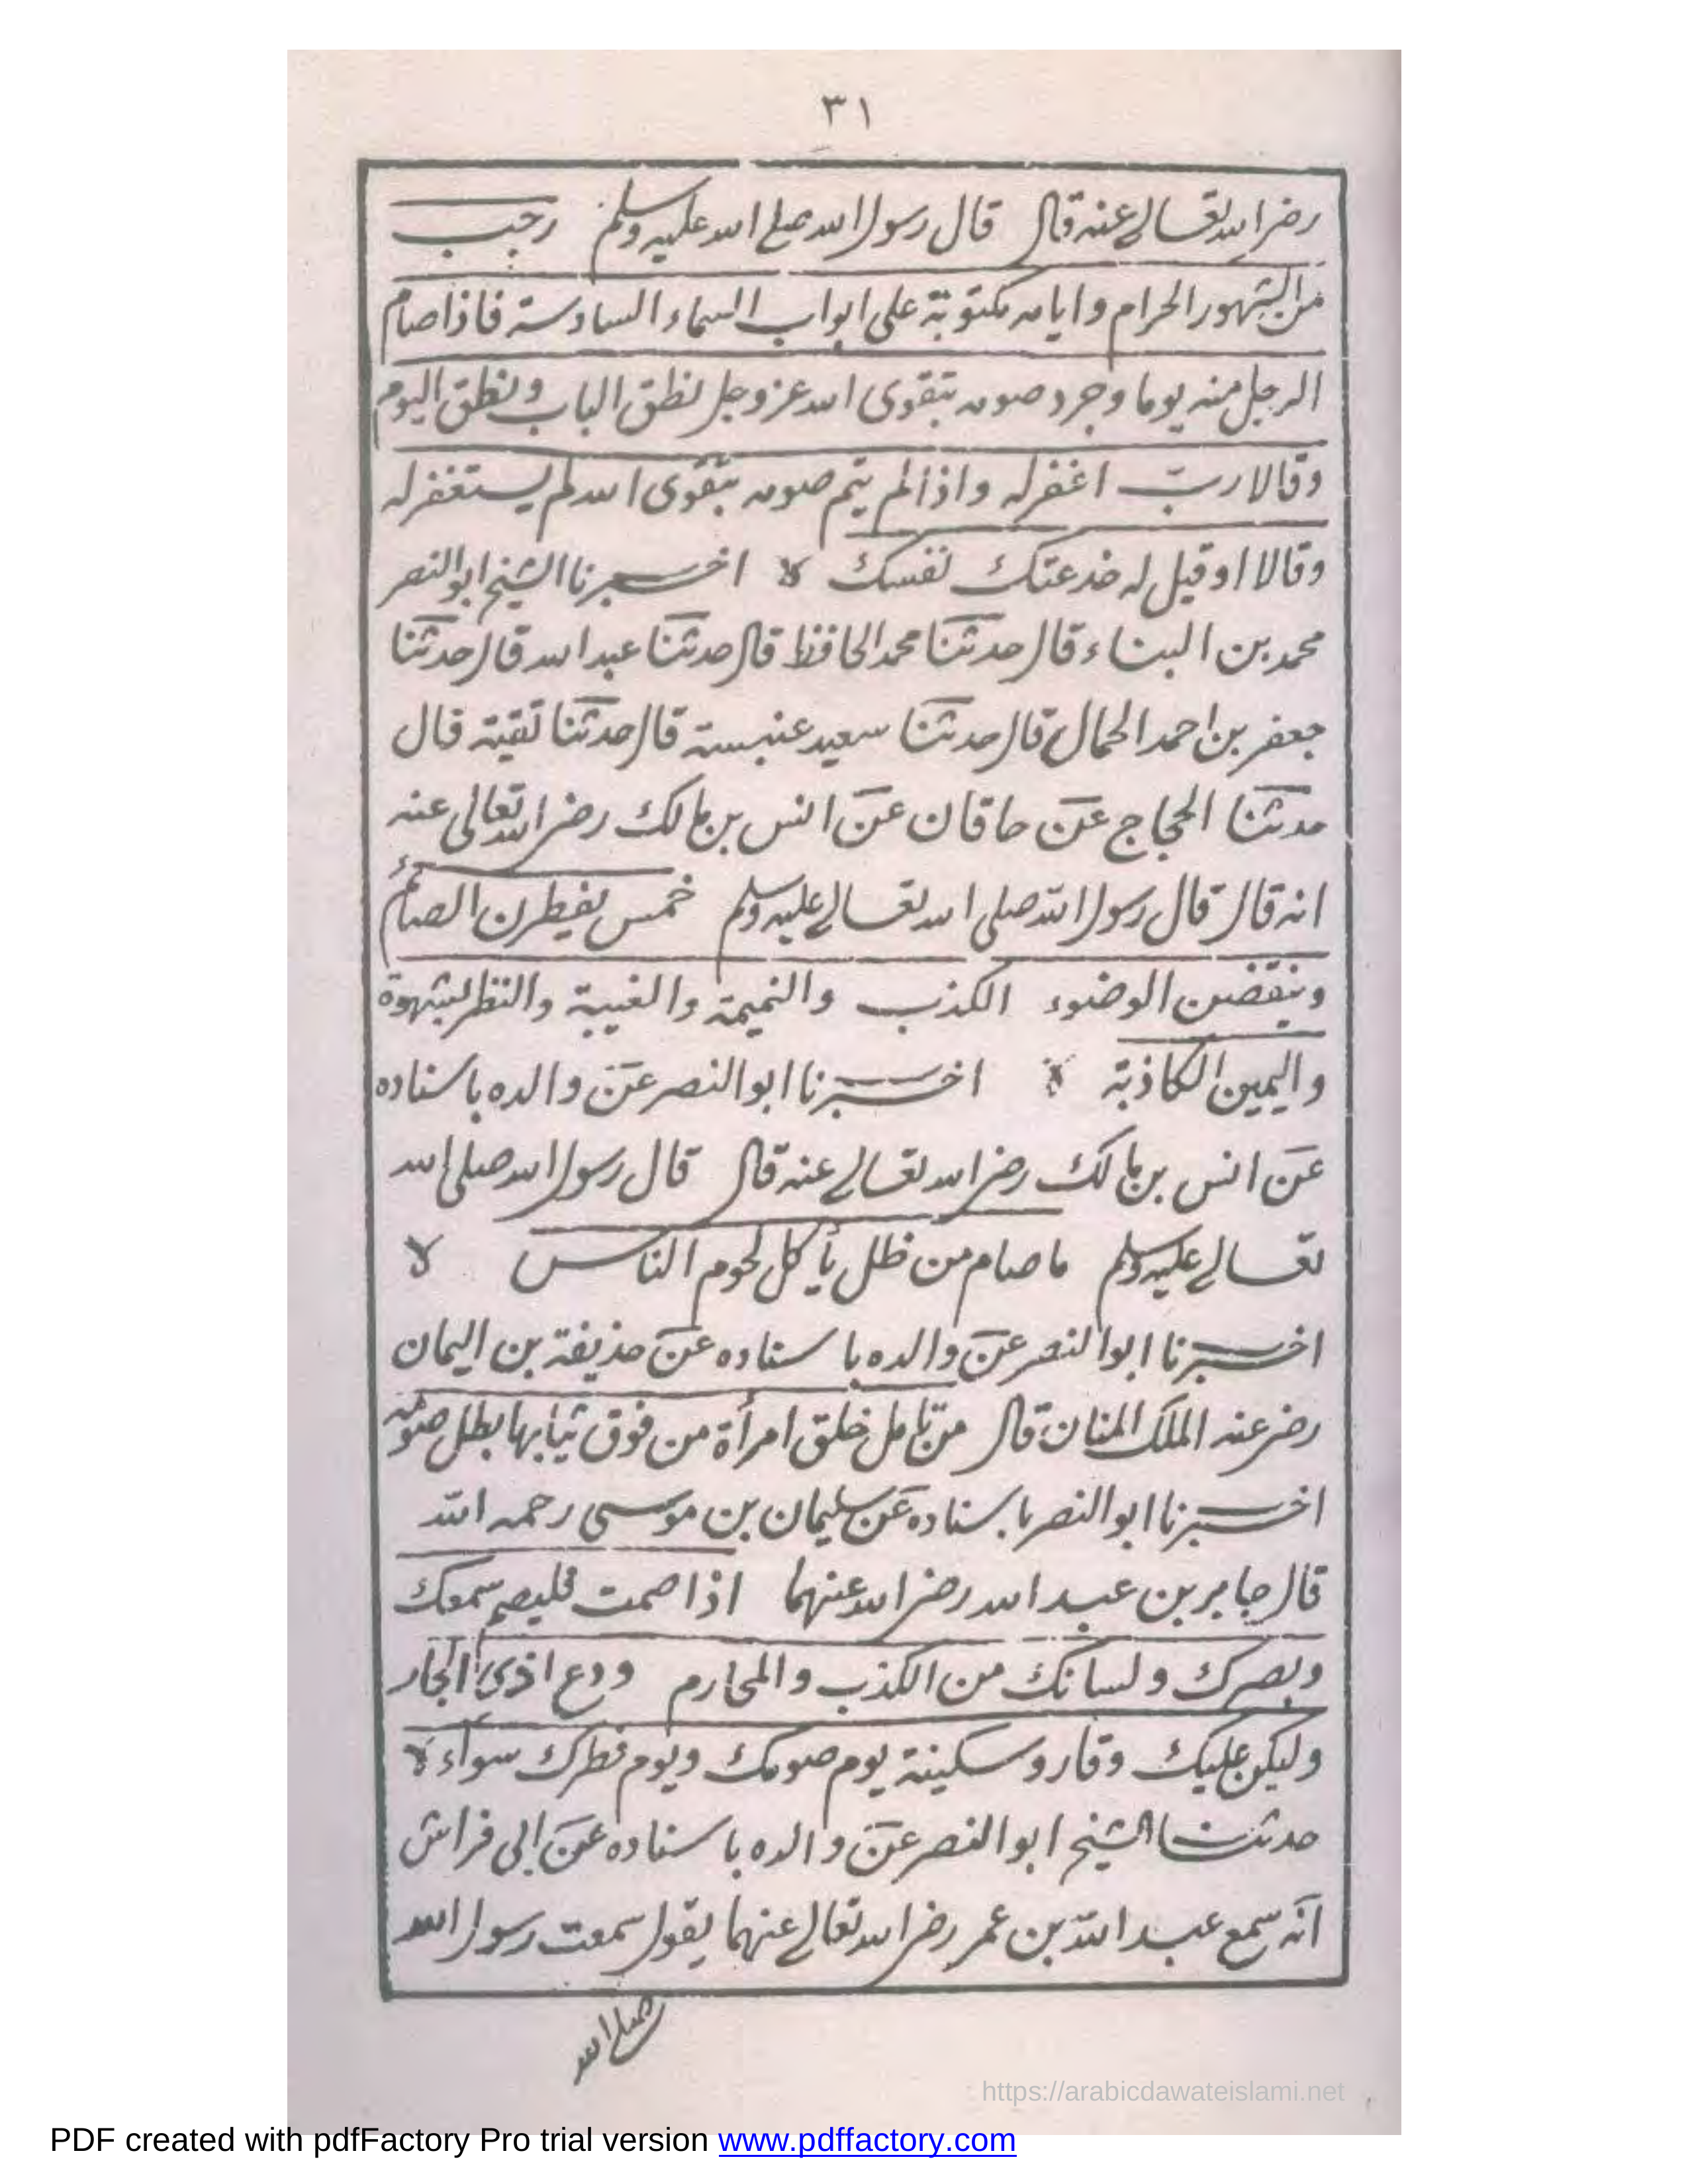 ٣١
رضي الله تعالے عنه قال قال رسول الله صلے الله عليه وسلم رجب
من الشهور الحرام وايامه مكتوبة على ابواب السماء السادسة فاذا صام
الرجل منه يوما وجرد صومه بتقوى الله عز وجل نطق الباب ونطق اليوم
وقالا ربّ اغفر له واذا لم يتم صومه بتقوى الله لم يستغفر له
وقالا او قيل له خدعتك نفسك لا اخبرنا الشيخ ابو النصر
محمد بن البناء قال حدثنا محمد الحافظ قال حدثنا عبد الله قال حدثنا
جعفر بن احمد الحمال قال حدثنا سعيد عنبسة قال حدثنا تقية قال
حدثنا الحجاج عن حاقان عن انس بن مالك رضي الله تعالى عنه
انه قال قال رسول الله صلى الله تعالے عليه وسلم خمس يفطرن الصائم
وينقضن الوضوء الكذب والنميمة والغيبة والنظر بشهوة
واليمين الكاذبة لا اخبرنا ابو النصر عن والده باسناده
عن انس بن مالك رضي الله تعالے عنه قال قال رسول الله صلى الله
تعالے عليه وسلم ما صام من ظل يأكل لحوم الناس لا
اخبرنا ابو النصر عن والده باسناده عن حذيفة بن اليمان
رضي عنه الملك المنان قال من تامل خلق امرأة من فوق ثيابها بطل صومه
اخبرنا ابو النصر باسناده عن سليمان بن موسى رحمه الله
قال جابر بن عبد الله رضي الله عنهما اذا صمت فليصم سمعك
وبصرك ولسانك من الكذب والمحارم ودع اذى الجار
وليكن عليك وقار وسكينة يوم صومك ويوم فطرك سواء لا
حدثنا الشيخ ابو النصر عن والده باسناده عن ابى فراش
انه سمع عبد الله بن عمر رضي الله تعالے عنهما يقول سمعت رسول الله
صلے الله
https://arabicdawateislami.net
PDF created with pdfFactory Pro trial version www.pdffactory.com